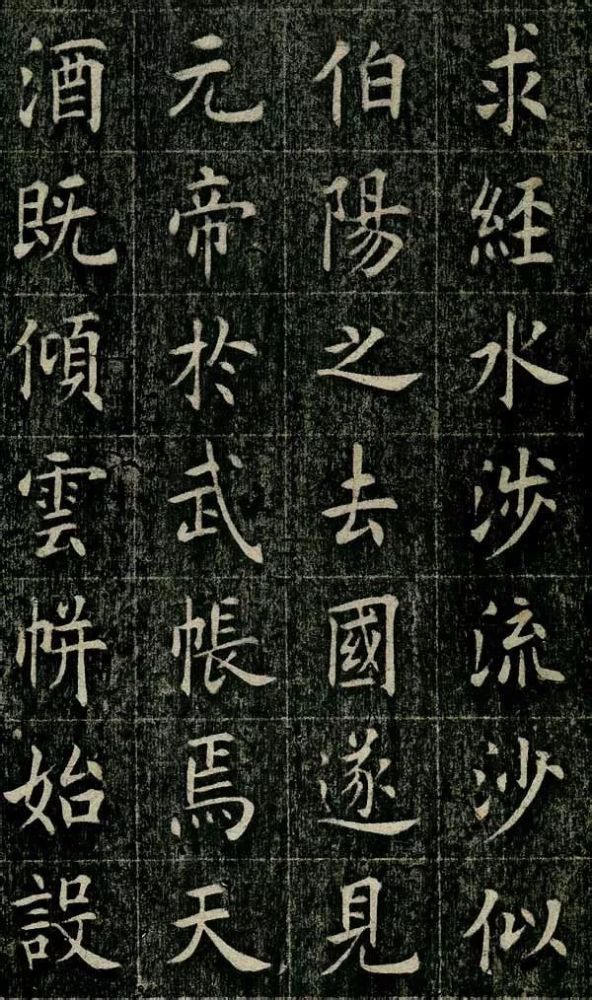 求經水涉流沙似
伯陽之去國遂見
元帝於武帳焉天
酒既傾雲帡始設